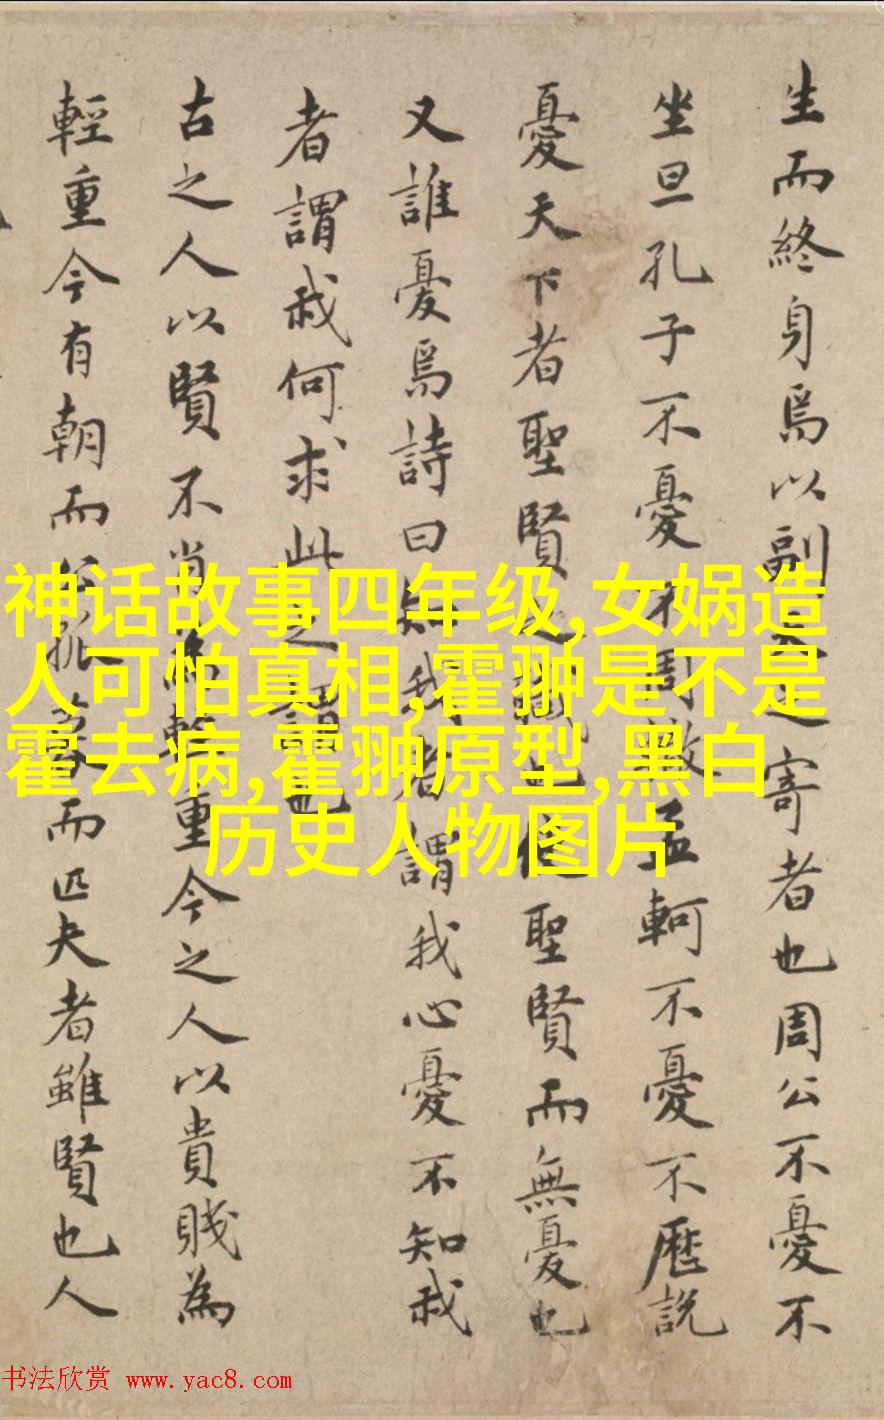 生而終身焉以副之寄者也周公不憂不
坐旦孔子不憂不周敫孟軻不憂不歷說
憂天下者聖賢之也使聖賢而無憂也
又誰憂焉詩曰知我者謂我心憂不知我
者謂我何求此之謂也
古之人以賢不肖為輕重今之人以貴賤為
輕重今有朝而匹夫者雖賢也人
神话故事四年级,女娲造
人可怕真相,霍翀是不是
霍去病,霍翀原型,黑白
历史人物图片
书法欣赏 www.yac8.com